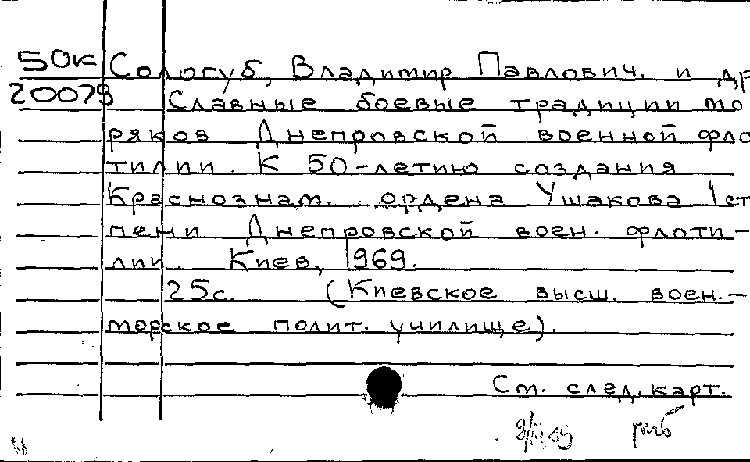 50к Сологуб, Владимир Павлович. и др
20079 Славные боевые традиции мо
ряков Днепровской военной фло
тилии. К 50-летию создания
Краснознам. ордена Ушакова 1 ст
пени Днепровской воен. флоти-
лии. Киев, 1969.
25с. (Киевское высш. воен.-
морское полит. училище).
См. след. карт.